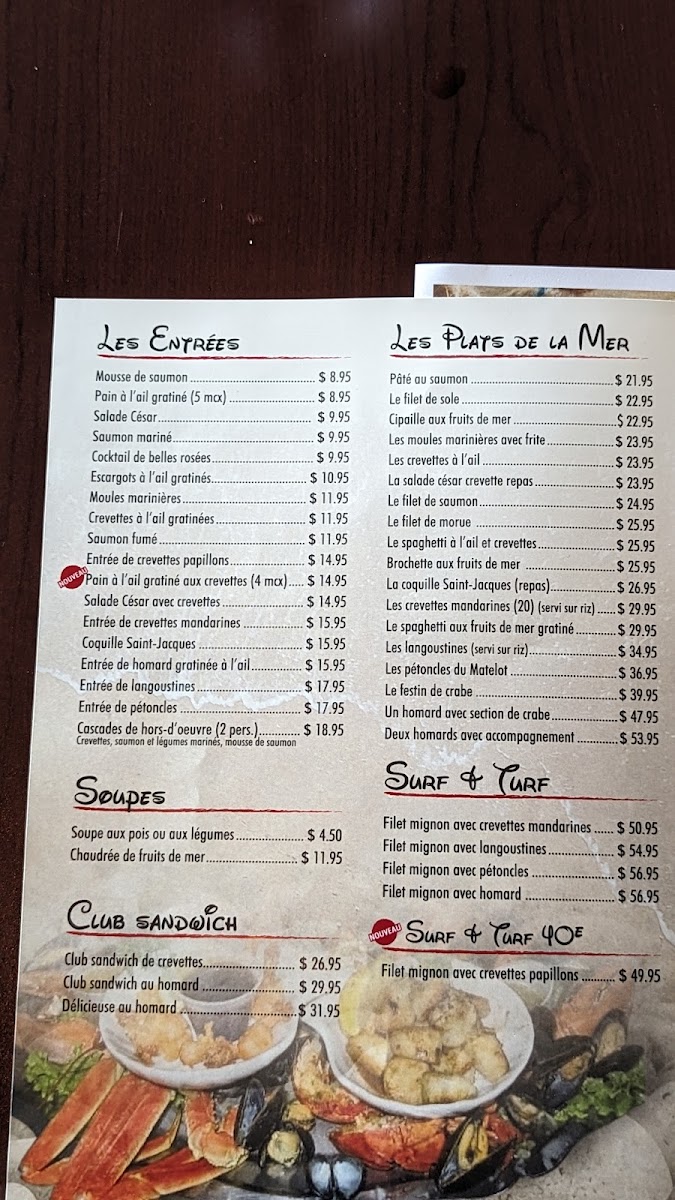 Les Entrées
Mousse de saumon ........ $ 8.95
Pain à l'ail gratiné (5 mcx) ........ $ 8.95
Salade César ........ $ 9.95
Saumon mariné ........ $ 9.95
Cocktail de belles rosées ........ $ 9.95
Escargots à l'ail gratinés ........ $ 10.95
Moules marinières ........ $ 11.95
Crevettes à l'ail gratinées ........ $ 11.95
Saumon fumé ........ $ 11.95
Entrée de crevettes papillons ........ $ 14.95
NOUVEAU Pain à l'ail gratiné aux crevettes (4 mcx) ..... $ 14.95
Salade César avec crevettes ........ $ 14.95
Entrée de crevettes mandarines ........ $ 15.95
Coquille Saint-Jacques ........ $ 15.95
Entrée de homard gratinée à l'ail ........ $ 15.95
Entrée de langoustines ........ $ 17.95
Entrée de pétoncles ........ $ 17.95
Cascades de hors-d'oeuvre (2 pers.) ........ $ 18.95
Crevettes, saumon et légumes marinés, mousse de saumon
Soupes
Soupe aux pois ou aux légumes ........ $ 4.50
Chaudrée de fruits de mer ........ $ 11.95
Club sandwich
Club sandwich de crevettes ........ $ 26.95
Club sandwich au homard ........ $ 29.95
Délicieuse au homard ........ $ 31.95
Les Plats de la Mer
Pâté au saumon ........ $ 21.95
Le filet de sole ........ $ 22.95
Cipaille aux fruits de mer ........ $ 22.95
Les moules marinières avec frite ........ $ 23.95
Les crevettes à l'ail ........ $ 23.95
La salade césar crevette repas ........ $ 23.95
Le filet de saumon ........ $ 24.95
Le filet de morue ........ $ 25.95
Le spaghetti à l'ail et crevettes ........ $ 25.95
Brochette aux fruits de mer ........ $ 25.95
La coquille Saint-Jacques (repas) ........ $ 26.95
Les crevettes mandarines (20) (servi sur riz) ...... $ 29.95
Le spaghetti aux fruits de mer gratiné ........ $ 29.95
Les langoustines (servi sur riz) ........ $ 34.95
Les pétoncles du Matelot ........ $ 36.95
Le festin de crabe ........ $ 39.95
Un homard avec section de crabe ........ $ 47.95
Deux homards avec accompagnement ........ $ 53.95
Surf & Turf
Filet mignon avec crevettes mandarines ...... $ 50.95
Filet mignon avec langoustines ........ $ 54.95
Filet mignon avec pétoncles ........ $ 56.95
Filet mignon avec homard ........ $ 56.95
NOUVEAU Surf & Turf 40E
Filet mignon avec crevettes papillons .......... $ 49.95